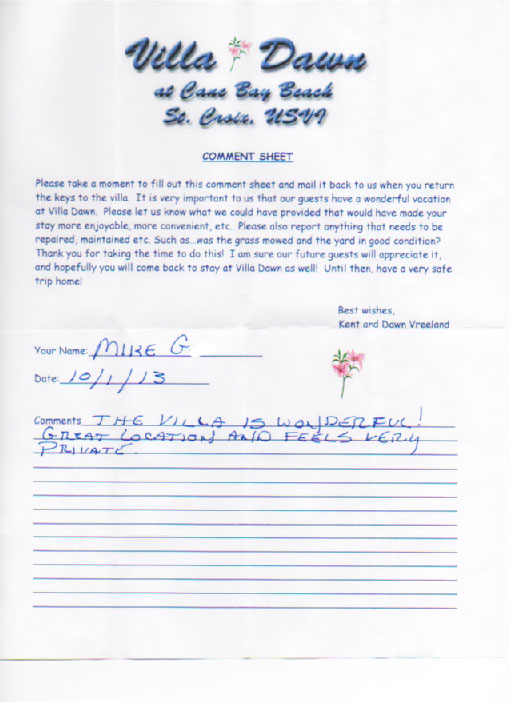 Villa Dawn
at Cane Bay Beach
St. Croix, USVI
COMMENT SHEET
Please take a moment to fill out this comment sheet and mail it back to us when you return
the keys to the villa. It is very important to us that our guests have a wonderful vacation
at Villa Dawn. Please let us know what we could have provided that would have made your
stay more enjoyable, more convenient, etc. Please also report anything that needs to be
repaired, maintained etc. Such as...was the grass mowed and the yard in good condition?
Thank you for taking the time to do this! I am sure our future guests will appreciate it,
and hopefully you will come back to stay at Villa Dawn as well! Until then, have a very safe
trip home!
Best wishes,
Kent and Dawn Vreeland
Your Name: MIKE G
Date: 10/1/13
Comments THE VILLA IS WONDERFUL!
GREAT LOCATION AND FEELS VERY
PRIVATE.